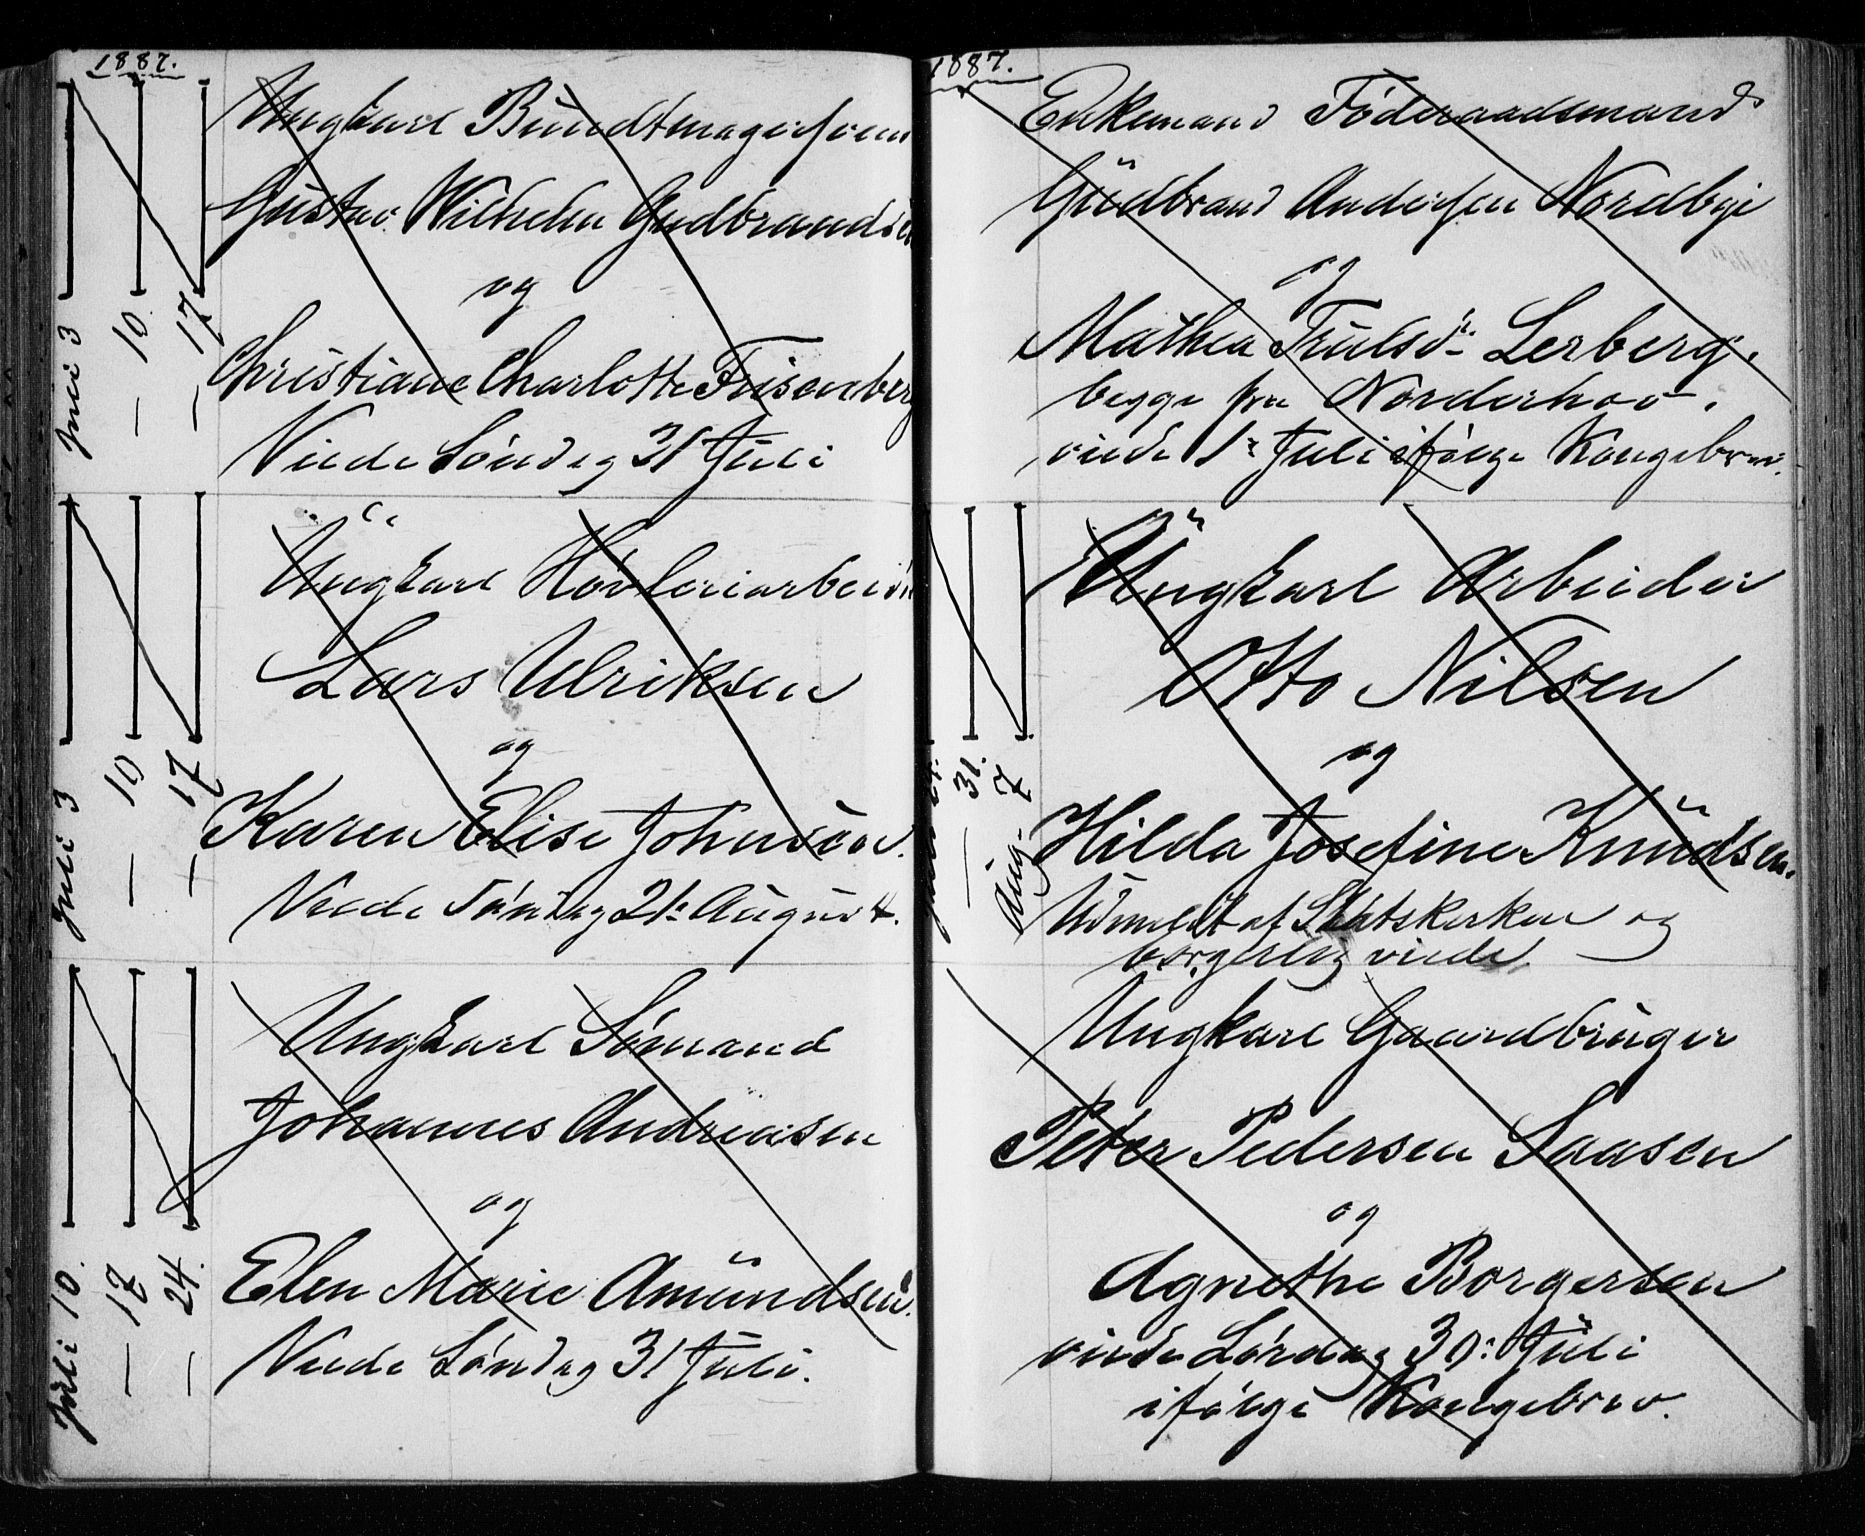 1887.
Ungkarl Bundtmagersvend
Gustav Wilhelm Gudbrandsen
og
Christiane Charlotte Frisenberg
Viede Søndag 31 Juli
Juli 3
— 10
— 17
Ungkarl Høvleriarbeider
Lars Ulriksen
og
Karen Elise Johnsen.
Viede Søndag 21: August.
Juli 3
— 10
— 17
Ungkarl Sømand
Johannes Andreasen
og
Elen Marie Amundsen.
Viede Søndag 31 Juli.
Juli 10.
— 17
— 24.
1887.
Enkemand Føderaadsmand
Gudbrand Andersen Nordbye
og
Mathea Trulsd- Lerberg.
begge fra Norderhov.
viede 1: Juli ifølge Kongebrev.
Ungkarl Arbeider
Otto Nilsen
og
Hilda Josefine Knudsen.
Udmeldt af Statskirken og
borgerlig viede
— 31.
Aug. 7
Ungkarl Gaardbruger
Peter Pedersen Saasen
og
Agnethe Borgersen
viede Lørdag 30: Juli
ifølge Kongebrev.